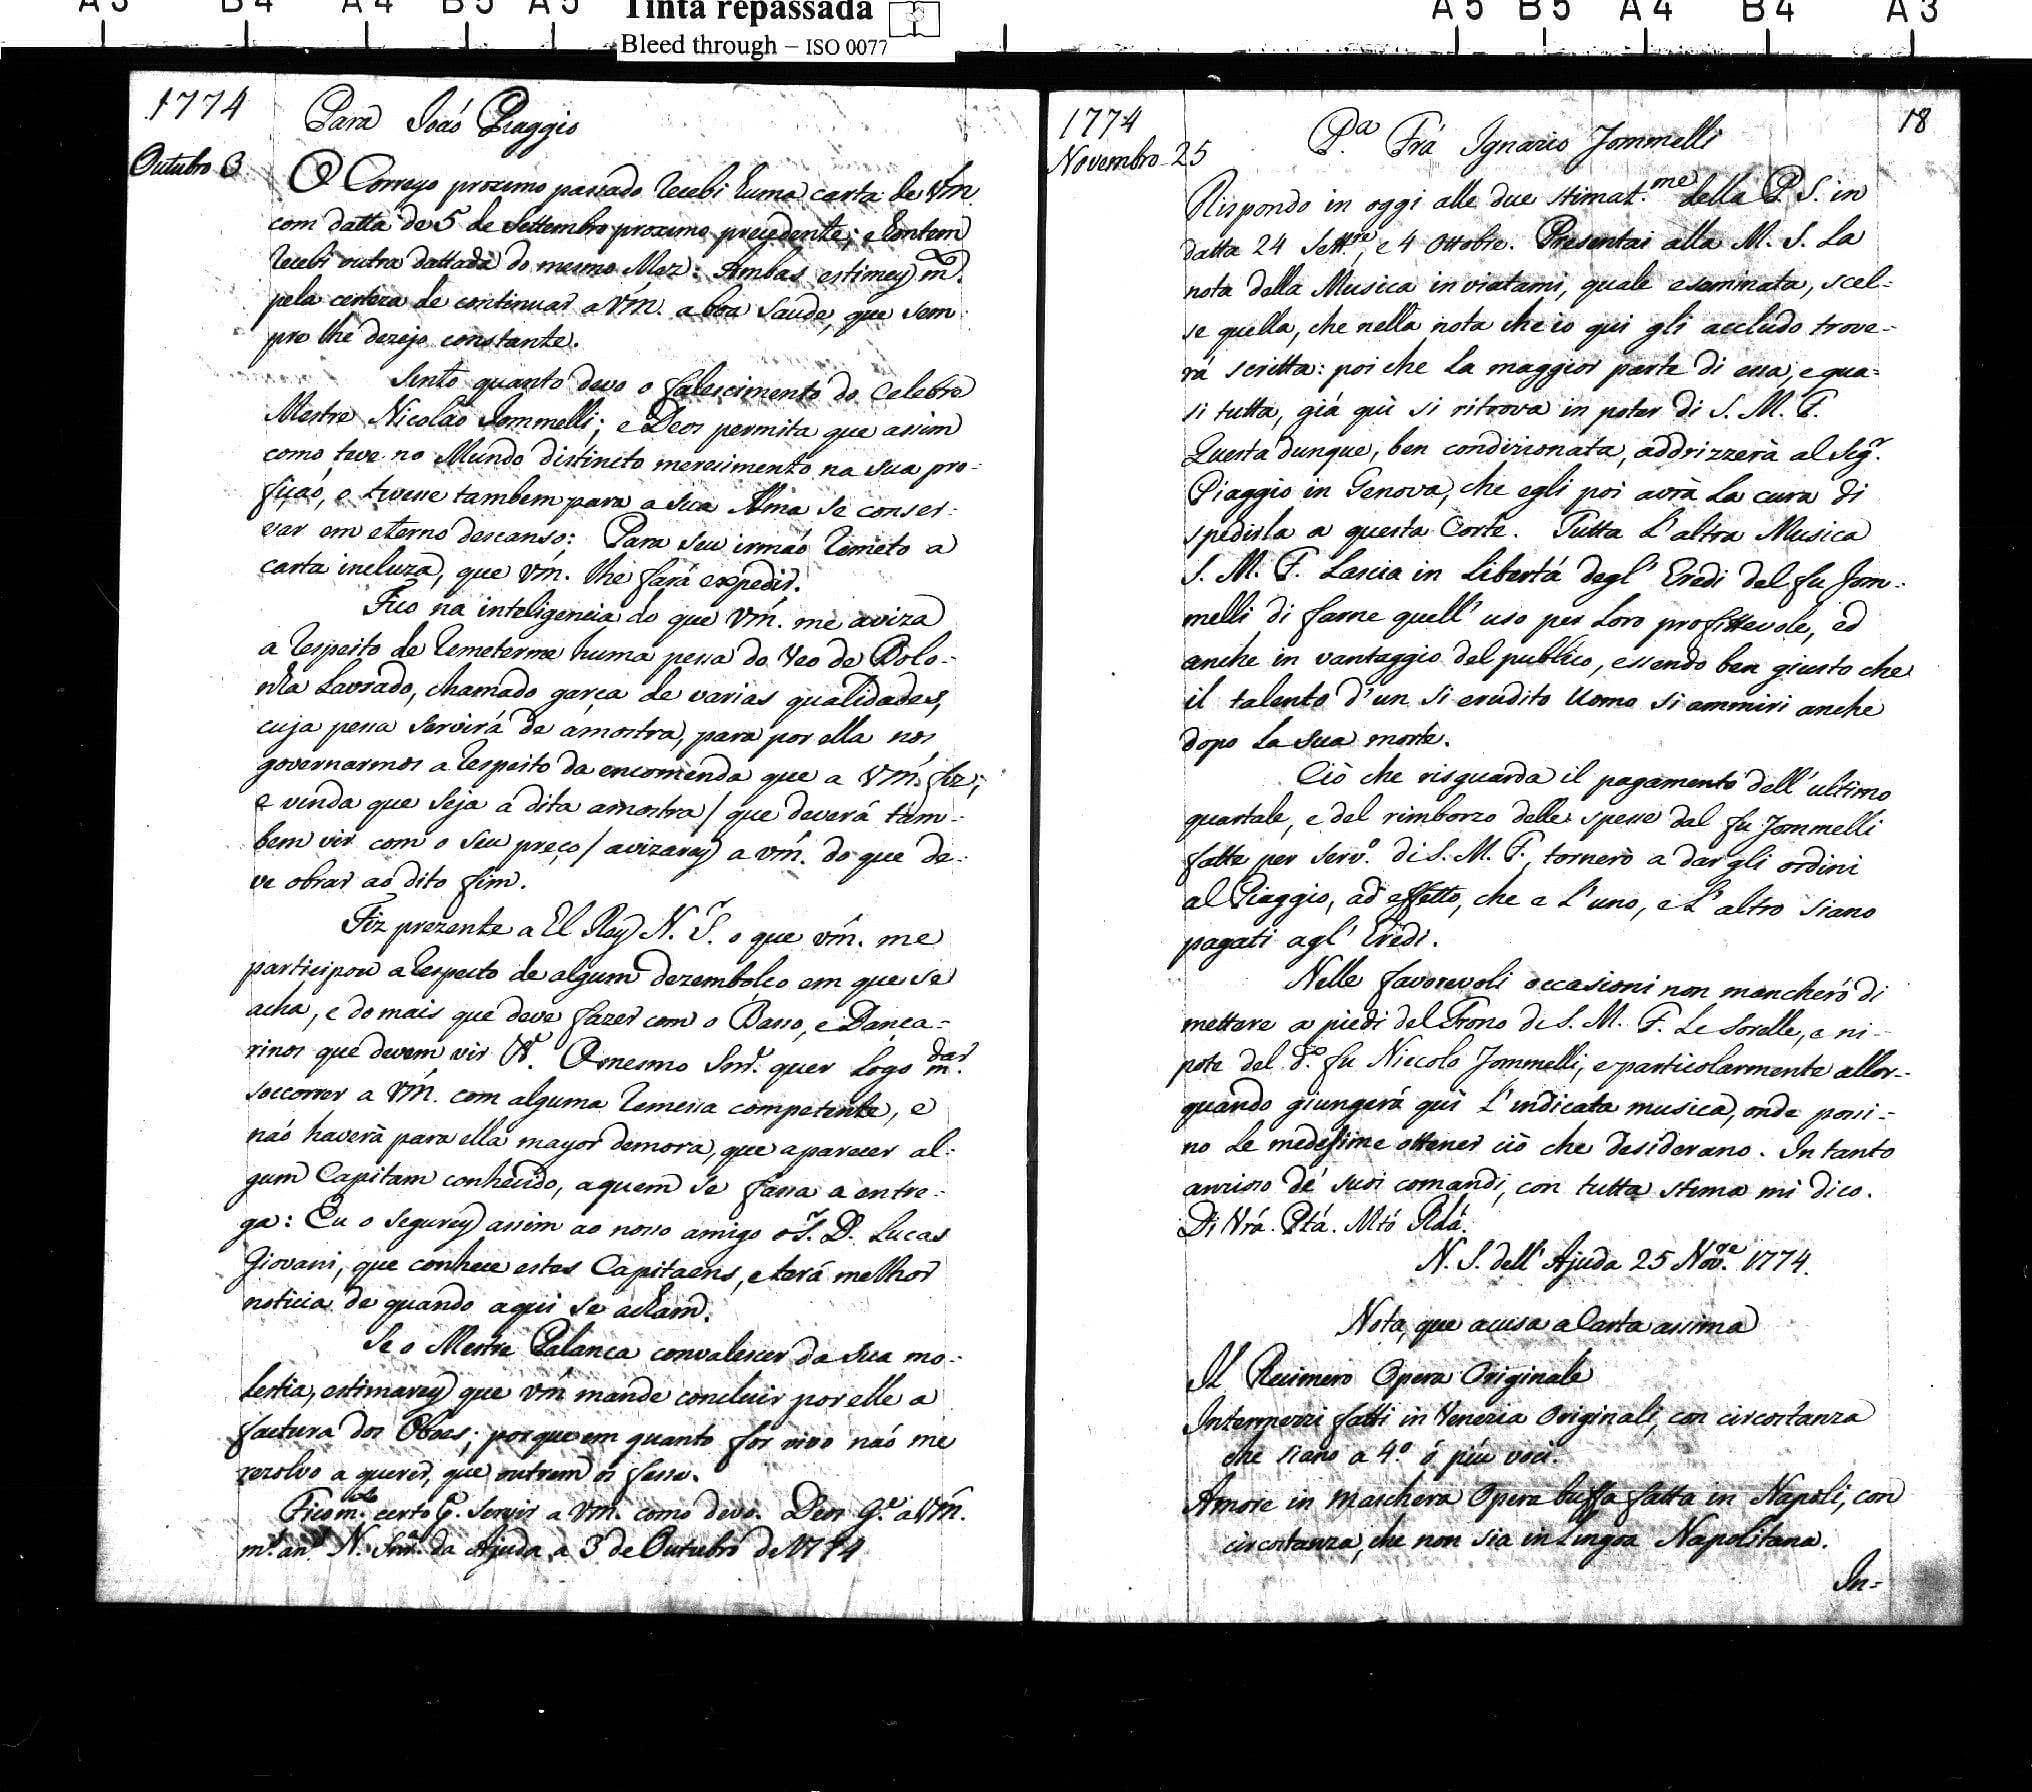 A3 B4 A4 B5 A5 Tinta repassada A5 B5 A4 B4 A3
Bleed through – ISO 0077
1774
Para João Piaggio
Outubro 3
O Correyo proximo passado recebi huma carta de Vm̃.
com datta de 5 de Settembro proximo precedente; e hontem
recebi outra dattada do mesmo Mez: Ambas estimey m.
pela certeza de continuar a Vm̃. a boa saude, que sem
pre lhe dezejo constante.
Sinto quanto devo o falescimento do Celebre
Mestre Nicolao Jommelli; e Deos permita que assim
como teve no Mundo distincto merecimento na sua pro-
fiçaõ, o tivesse tambem para a sua Alma se conser-
var em eterno descanso: Para seu irmaõ remeto a
carta incluza, que Vm̃. lhe fará expedir.
Fico na inteligencia do que Vm̃. me aviza
a respeito de remeterme huma pessa do Veo de Bolo-
nha Lavrado, chamado garça de varias qualidades,
cuja pessa servirá de amostra, para por ella nos
governarmos a respeito da encomenda que a Vm̃. fiz;
e vinda que seja a dita amostra / que deverá tam-
bem vir com o seu preço / avizarey a Vm̃. do que de-
ve obrar ao dito fim.
Fiz prezente a El Rey N. S.r o que Vm̃. me
participou a respeito de algum dezembolço em que se
acha, e do mais que deve fazer com o Basso, e Dança-
rinos que devem vir O mesmo Snr. quer Logo m.dar
soccorrer a Vm̃. com alguma remessa competente, e
naõ haverá para ella mayor demora, que aparecer al-
gum Capitam conhecido, a quem se fassa a entre-
ga: Eu o segurey assim ao nosso amigo o S.r D. Lucas
Giovani, que conhece estes Capitaens, e terá melhor
noticia de quando aqui se acham.
Se o Mestre Palanca convalescer da sua mo-
lestia, estimarey que Vm̃. mande concluir por elle a
factura dos Oboes; porque em quanto for vivo naõ me
rezolvo a querer, que outrem os fasse.
Fico m.to certo p.a servir a Vm̃. como devo. Deos g.e a Vm̃.
m.s an.s N. Snr.a da Ajuda a 3 de Outubro de 1774
18
1774
Novembro 25
P.a Frá Ignazio Jommelli
Rispondo in oggi alle due stimat.me della P. S. in
datta 24 Sett.re, e 4 Ottobre. Presentai alla M. S. La
nota della Musica inviatami, quale esaminata, scel-
se quella, che nella nota che io qui gli accludo trove-
rá scritta: poi che La maggior parte di essa, e qua-
si tutta, giá quì si ritrova in poter di S. M. F.
Questa dunque, ben condizionata, addrizzerà al Sig.r
Piaggio in Genova, che egli poi avrà La cura di
spedirla a questa Corte. Tutta L'altra Musica
S. M. F. Lascia in Libertá degl' Eredi del fu Jom-
melli di farne quell' uso per Loro profittevole, ed
anche in vantaggio del publico, essendo ben giusto che
il talento d'un si erudito Uomo si ammiri anche
dopo La sua morte.
Ciò che risguarda il pagamento dell' ultimo
quartale, e del rimborzo delle spesse dal fu Jommelli
fatte per serv.o di S. M. F., tornerò a dar gli ordini
al Piaggio, ad effetto, che e L'uno, e L'altro siano
pagati agl' Eredi.
Nelle favorevoli occasioni non mancheró di
mettere a piedi del Trono di S. M. F. Le Sorelle, e ni-
pote del d.o fu Niccolo Jommelli, e particolarmente allor-
quando giungerá quì L'indicata musica, onde possi-
no Le medesime ottener ciò che desiderano. In tanto
anzioso de' suoi comandi, con tutta stima mi dico.
Di Vrá. Ptá. Mtó Rdá.
N. S. dell' Ajuda 25 Nov.re 1774.
Nota, que acusa a Carta assima
Il Recimero Opera Originale
Intermezzi fatti in Venezia Originali, con circostanza
che siano a 4.o ó piú voci.
Amore in maschera Opera buffa fatta in Napoli, con
circostanza, che non sia in Lingoa Napolitana.
In-